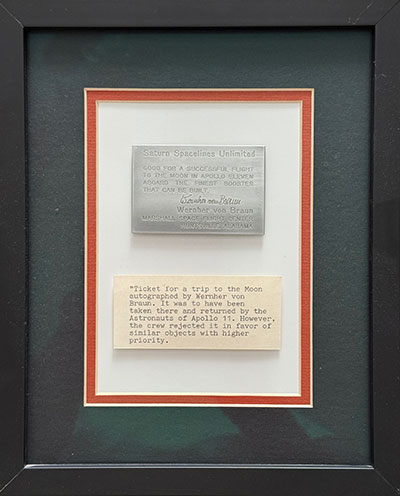 Saturn Spacelines Unlimited
GOOD FOR A SUCCESSFUL FLIGHT
TO THE MOON IN APOLLO ELEVEN
ABOARD THE FINEST BOOSTER
THAT CAN BE BUILT.
Wernher von Braun
Wernher von Braun
MARSHALL SPACE FLIGHT CENTER
HUNTSVILLE, ALABAMA
"Ticket for a trip to the Moon
autographed by Wernher von
Braun. It was to have been
taken there and returned by the
Astronauts of Apollo 11. However,
the crew rejected it in favor of
similar objects with higher
priority.